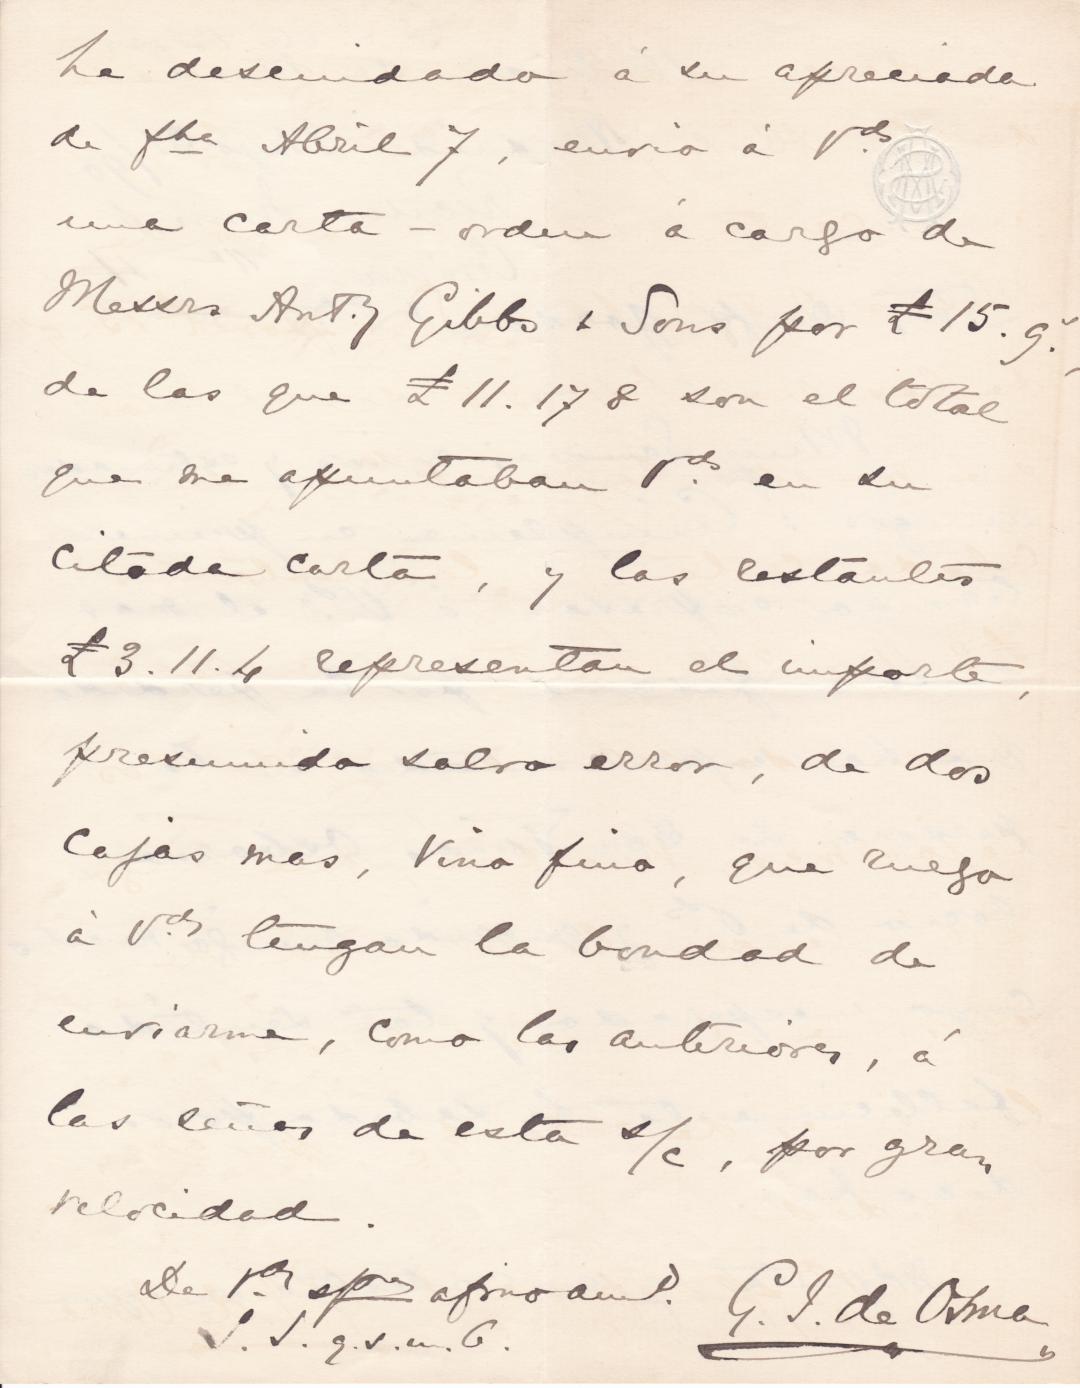 ha descuidado á su apreciada
de fha Abril 7, envio á Vds
una carta-orden á cargo de
Messrs Anty Gibbs & Sons por £15.9.,
de las que £11.17 8 son el total
que me apuntaban Vds en su
citada carta, y las restantes
£3.11.4 representan el importe,
presumido salvo error, de dos
cajas mas, Vino fino, que ruego
á Vds tengan la bondad de
enviarme, como las anteriores, á
las señas de esta s/c, por gran
velocidad.
De Vds spre afmo am.
S. S. q.s.m.b.
G. J. de Osma